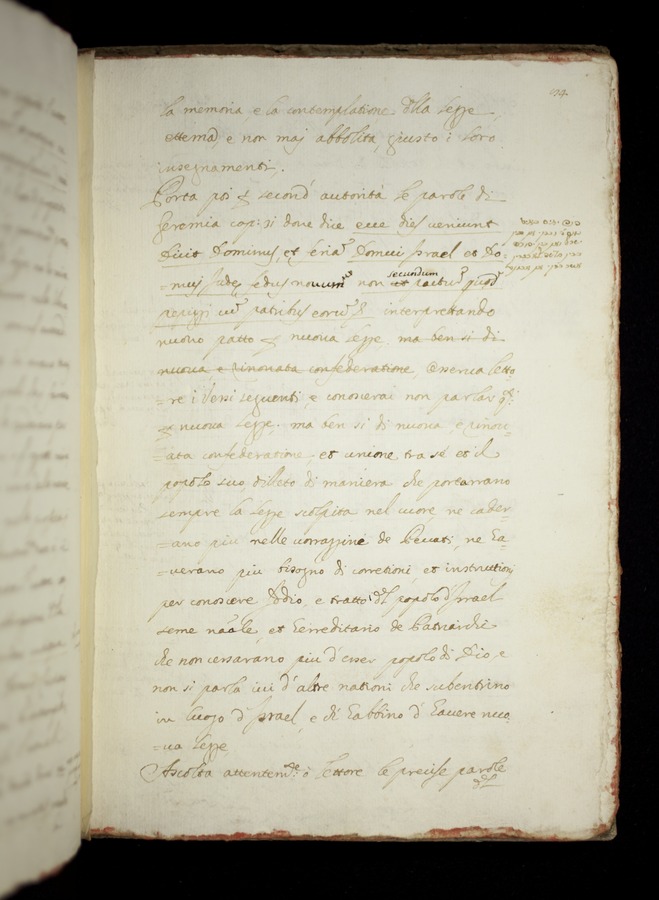 la memoria e la contemplatione dlla legge
etterna e non maj abbolita, giusto i loro
insegnamenti.
Porta poi p second' autorità le parole di
Geremia cap: 31 dove dice ecce dies venient
Dicit Dominus, et feriam Domui Israel et Do=
=mui Juda fedus novum non secundum pactum quod
pepigi cum patribus eorum & interpretando
nuovo patto p nuova legge, ma ben si di
nuova e rinovata confederatione, Osserva letto
=re i versi seguenti e conoscerai non parlar
p nuova legge, ma ben si di nuova, e rinov=
=ata confederatione, et unione tra sé et il
popolo suo diletto di maniera che portarrano
sempre la legge scolpita nel cuore ne cader=
=ano piu nelle vorragine de Peccati, ne ha=
=verano piu bisogno di corretioni, et instruttioni
per conoscere Iddio, e tratto del popolo d'Israel
seme nãale, et herreditario de Patriarchi
che non cessarano piu d'esser popolo di Dio, e
non si parla ivi d'altre nationi che subentrino
in luogo d'Israel, e di habbino d'havere nuo
=va legge
Ascolta attentem.te ò lettore le precise parole
del